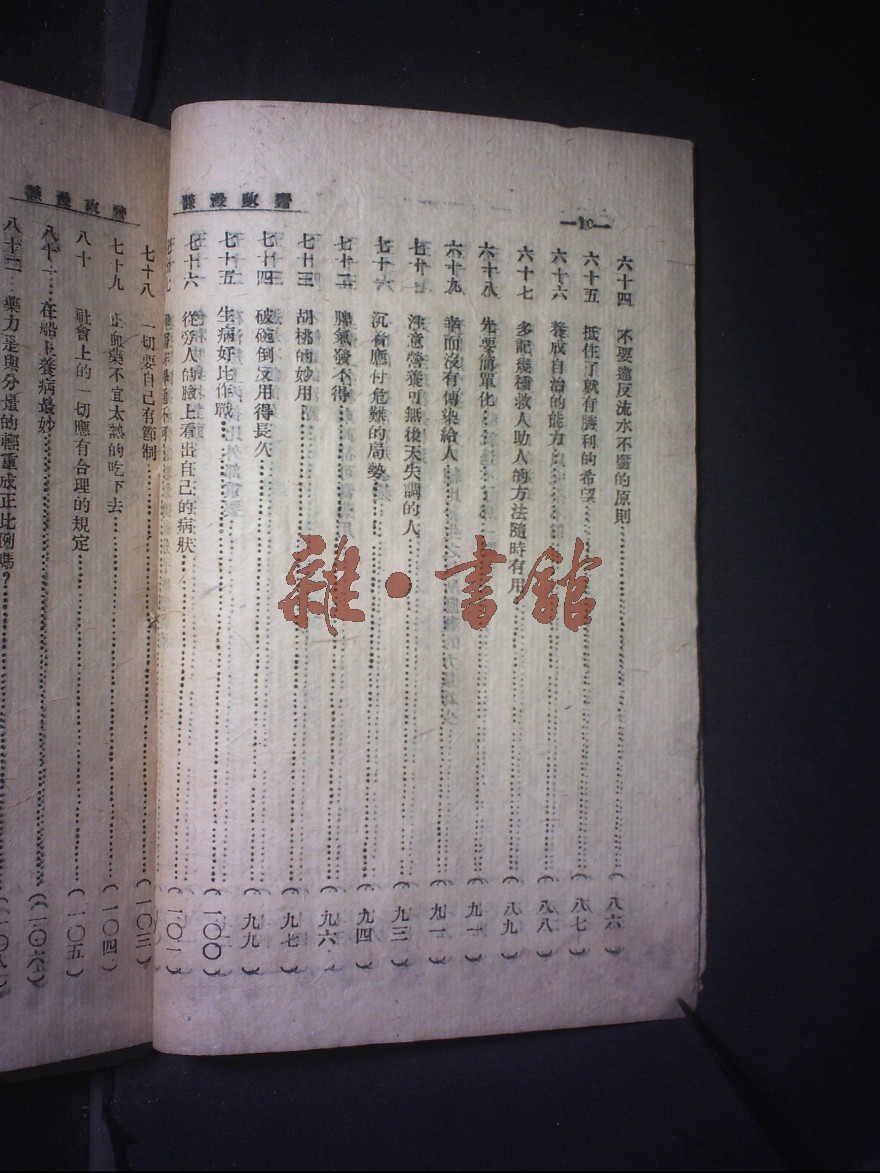 —10—
六十四 不要違反流水不腐的原則(八六)
六十五 抵住了就有勝利的希望(八七)
六十六 養成自治的能力(八八)
六十七 多記幾種救人助人的方法隨時有用(八九)
六十八 先要簡單化(九一)
六十九 幸而沒有傳染給人(九一)
注意營養可無後天失調的人(九三)
沉着應付危難的局勢(九四)
脾氣發不得(九六)
七十三 胡桃的妙用(九七)
七十四 破碗倒反用得長久(九九)
七十五 生病好比作戰(一〇〇)
七十六 從旁人的臉上看出自己的病狀(一〇一)
七十八 一切要自己有節制(一〇三)
七十九 止血藥不宜太熱的吃下去(一〇四)
八十 社會上的一切應有合理的規定(一〇五)
八十一 在船上養病最妙(一〇六)
八十二 藥力是與分量的輕重成正比例嗎?(一〇八)
雜·書館